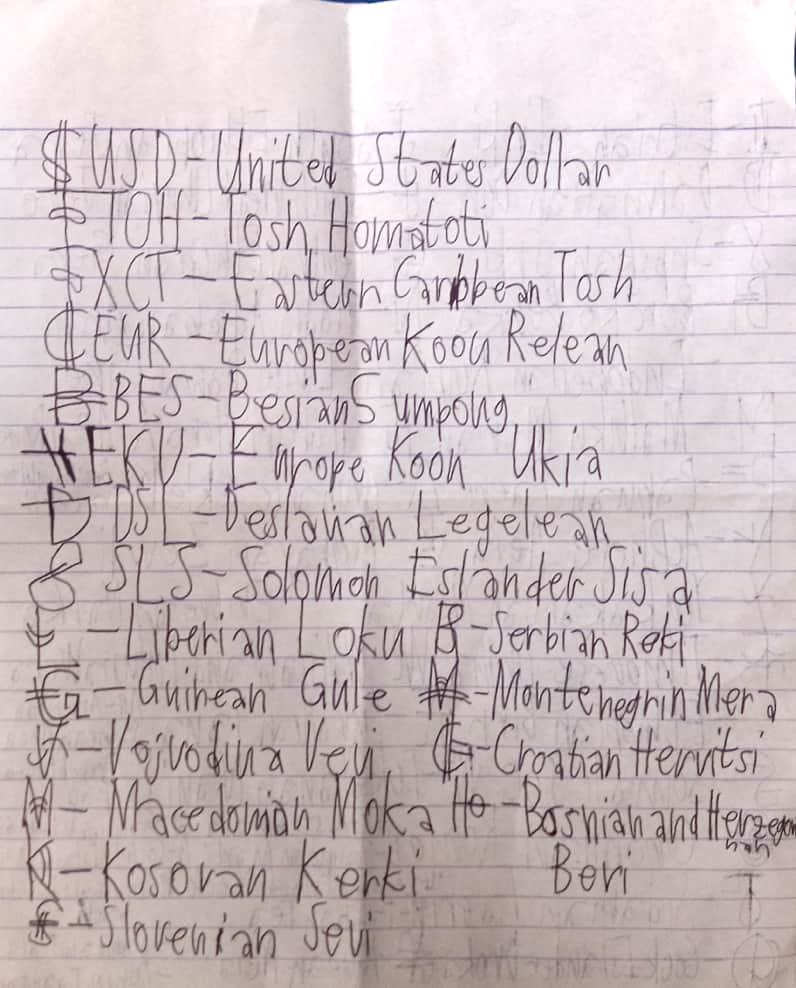 $ USD-United States Dollar
TOH-Tosh Homatoti
XCT-Eastern Caribbean Tosh
EUR-European Koou Relean
BES-Besian Sumpong
EKU-Europe Koon Ukia
DSL-Deslavian Legelean
SLS-Solomon Eslander Sisa
-Liberian Loku -Serbian Reki
-Guinean Gule -Montenegrin Mera
-Vojvodina Vevi -Croatian Hervitsi
-Macedonian Moka -Bosnian and Herzegovnan
-Kosovan Kerki Beri
-Slovenian Sevi